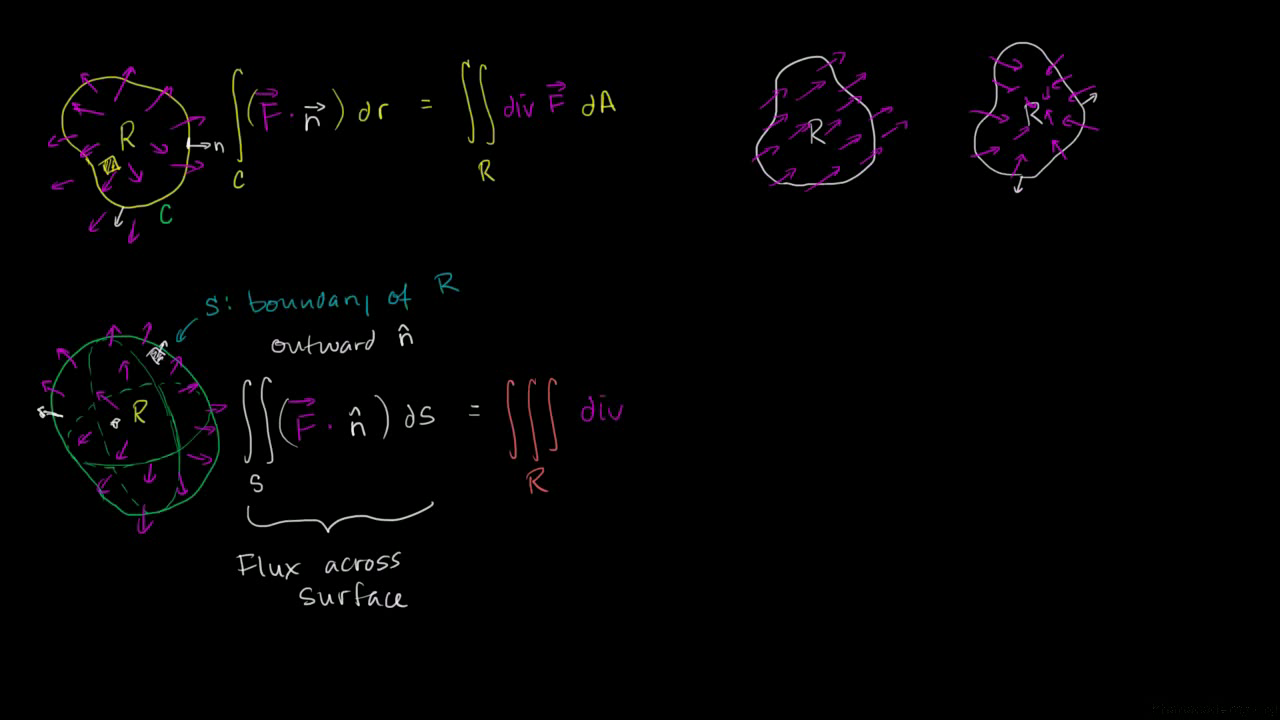 R
n
C
∫_C (F⃗ · n⃗) dr = ∬_R div F⃗ dA
R
R
S: boundary of R
outward n̂
R
∬_S (F⃗ · n̂) dS = ∭_R div
Flux across
surface